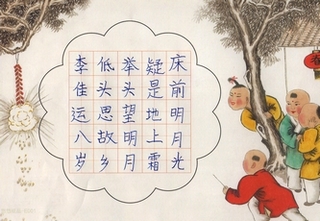 床前明月光
疑是地上霜
举头望明月
低头思故乡
李佳运八岁